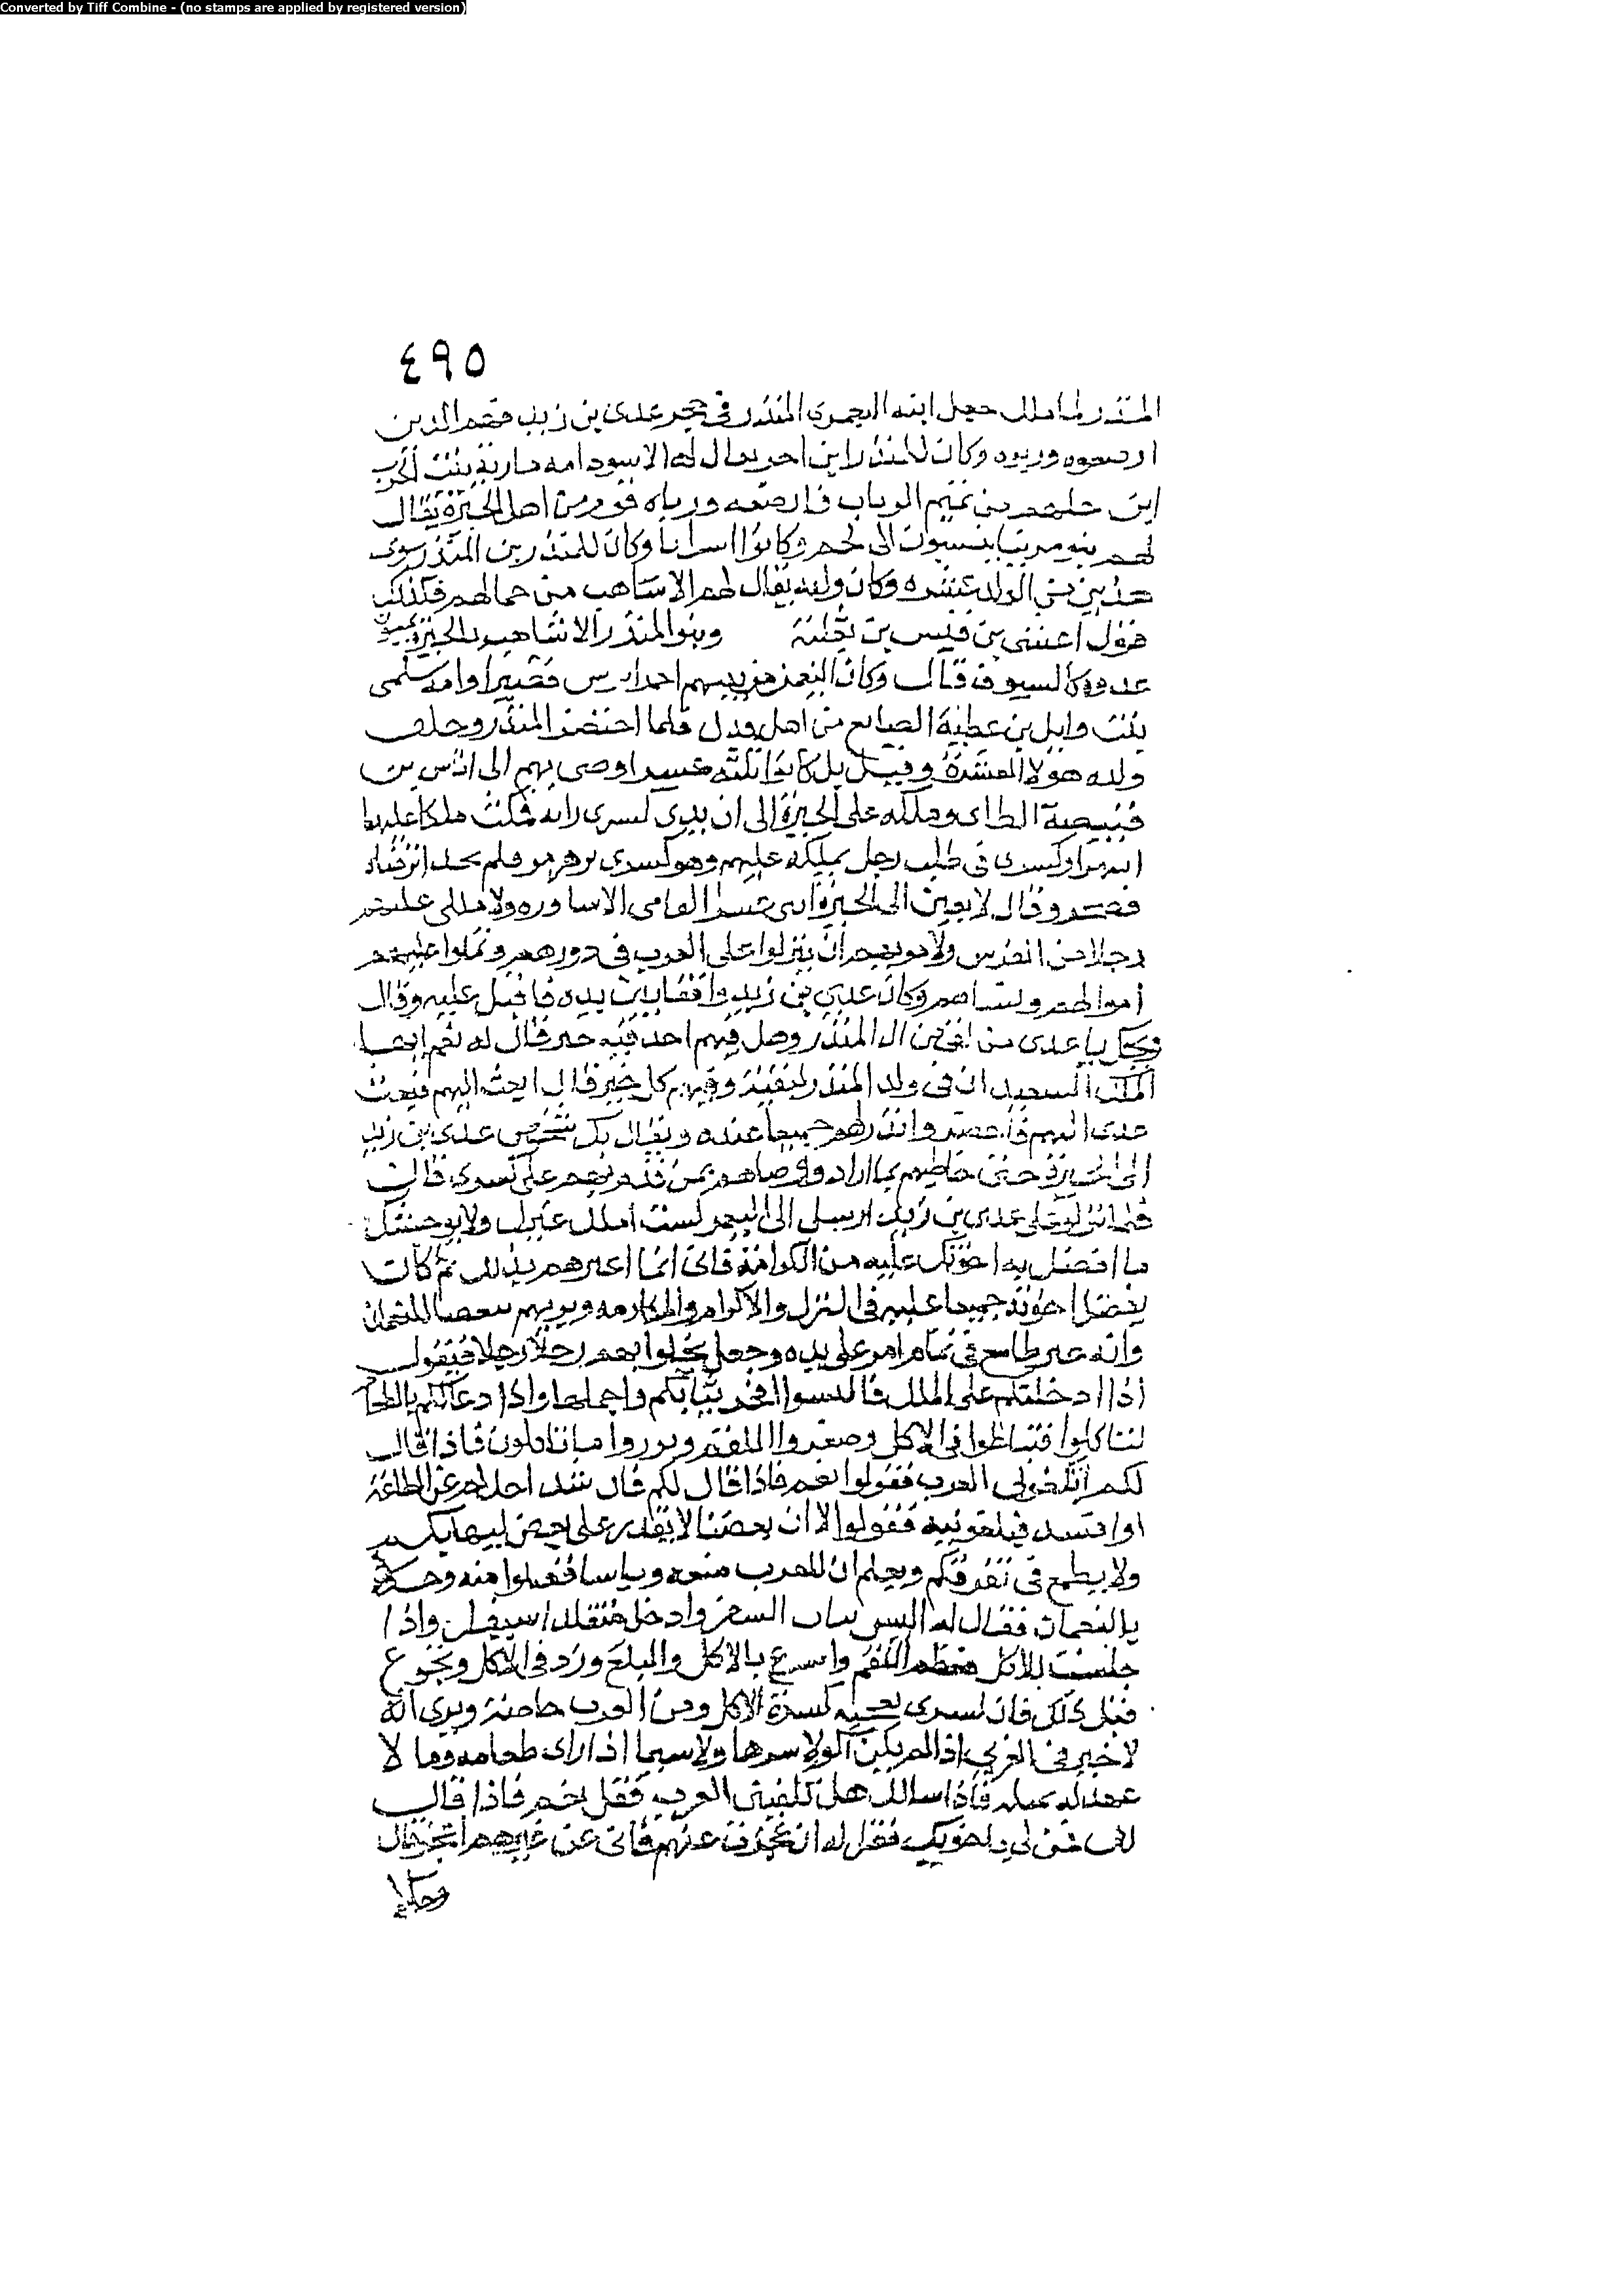 Converted by Tiff Combine - (no stamps are applied by registered version)
٤٩٥
المنذر لما ملك جعل ابنه النعمن بن المنذر في حجر عدى بن زيد فهم الذين
ارضعوه وربوه وكان للمنذر ابن اخر يقال له الاسود امه مارية بنت الحرث
ابن جلهم من تيم الرباب فارضعه ورباه قوم من اهل الحيرة يقال
لهم بنو مرينا ينسبون الى لخم وكانوا اشرافا وكان للمنذر بن المنذر سوى
هذين من الولد عشره وكان ولده يقال لهم الاشاهب من جمالهم فذلك
قول اعشى بن قيس بن ثعلبة وبنو المنذر الاشاهب بالحيرة يمشون
غدوة كالسيوف قال وكان النعمن من بينهم احمر ابرش قصيرا وامه سلمى
بنت وايل بن عطية الصايغ من اهل فدك فلما احتضر المنذر وخلف
ولده هولاء العشرة وقيل بل كانوا ثلثه عشر اوصى بهم الى اياس بن
قبيصة الطاى وملكه على الحيرة الى ان يرى كسرى رايه فمكث ملكا عليها
اشهرا وكسرى في طلب رجل يملكه عليهم وهو كسرى بن هرمز فلم يجد احدا يرضاه
فضجر وقال لابعثن الى الحيرة اثنى عشر الفا من الاساوره ولاملكن عليهم
رجلا من الفرس ولامرنهم ان ينزلوا على العرب في دورهم ويملكوا عليهم
اموالهم ونساهم وكان عدى بن زيد واقفا بين يديه فاقبل عليه وقال
ويحك يا عدى من بقى من ال المنذر وهل فيهم احد فيه خير فقال له نعم ايها
الملك السعيد ان في ولد المنذر لبقية وفيهم كلهم خير قال ابعث اليهم فبعث
عدى اليهم فاحضرهم وانزلهم جميعا عنده ويقال بل شخص عدى بن زيد
الى الحيرة حتى خاطبهم بما اراد واوصاهم ثم قدم بهم على كسرى قال
فلما نزلوا على عدى بن زيد ارسل الى النعمن لست املك غيرك ولا يوحشنك
ما افضل به اخوتك عليه من الكرامة فانى انما اغترهم بذلك ثم كان
يفضل اخوته جميعا عليه في النزل والاكرام والملازمه ويريهم تنقصا للنعمان
وانه غير طامع في تمام امر على يده وجعل يخلوا بهم رجلا رجلا فيقول
اذا ادخلتكم على الملك فالبسوا افخر ثيابكم واجملها واذا دعا لكم بالطعام
لتاكلوا فتباطوا في الاكل وصغروا اللقم ونزروا ما تاكلون فاذا قال
لكم اتكفونى العرب فقولوا نعم فاذا قال لكم فان شذ احدكم عن الطاعة
او افسد فتكفونيه فقولوا لا ان بعضنا لا يقدر على بعض ليهابكم
ولا يطمع في تفرقكم ويعلم ان للعرب منعه وباسا فقبلوا منه وخلا
بالنعمان فقال له البس ثياب السفر وادخل متقلدا سيفك واذا
جلست للاكل فعظم اللقم واسرع بالاكل والبلع وزد في الاكل وتجوع
قبل ذلك فان كسرى يعجبه كثرة الاكل ومن العرب خاصة ويرى انه
لا خير في العربى اذا لم يكن اكولا شرها ولا سيما اذا راى طعامه وما لا
عهد له بمثله فاذا سالك هل تكفينى العرب فقل نعم فاذا قال
لك فمن لي باخوتك فقل له ان عجزت عنهم فانى عن غيرهم اعجز قال
وخلا